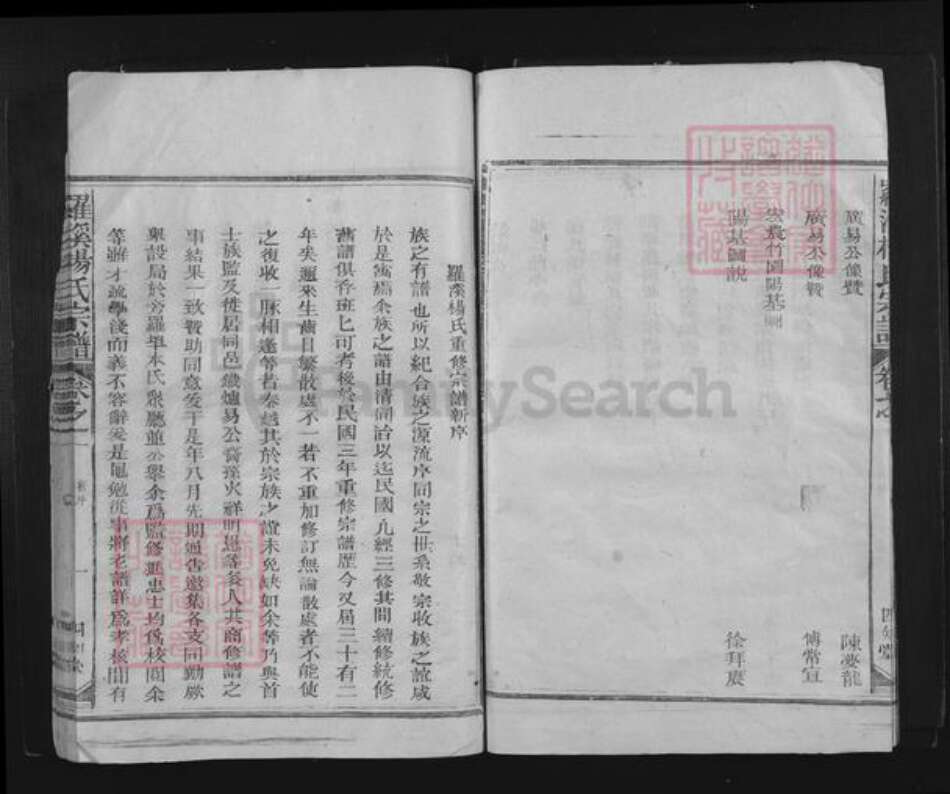 羅溪楊氏宗譜
廣易公像贊 陳夢龍
廣易公像贊 傅常宣
竹園陽基圖
陽基圖說 徐拜賡
羅溪楊氏重修宗譜新序
族之有譜也所以紀合族之源流序同宗之世系敬宗收族之誼咸
於是寓焉余族之譜由清同治以迄民國凡經三修其間續修統修
舊譜俱在班匕可考後於民國三年重修宗譜歷今又屆三十有二
年矣邇來生齒日繁散處不一若不重加修訂無論散處者不能使
之復收一脈相逢等若秦越其於宗族之誼未免缺如余等乃與首
士族監及徙居同邑 爐易公裔孫火祥明 等 人共商修譜之
事結果一致贊助同意爰于是年八月先期通告邀集各支同勷厥
舉設局於 羅埠本氏 廳並公舉余為監修 忠士均為校閱余
等雖才疏學淺而義不容辭爰是黽勉從事將老譜詳為考核間有
羅溪楊氏宗譜
卷之一
新序
一
四知堂
FamilySearch